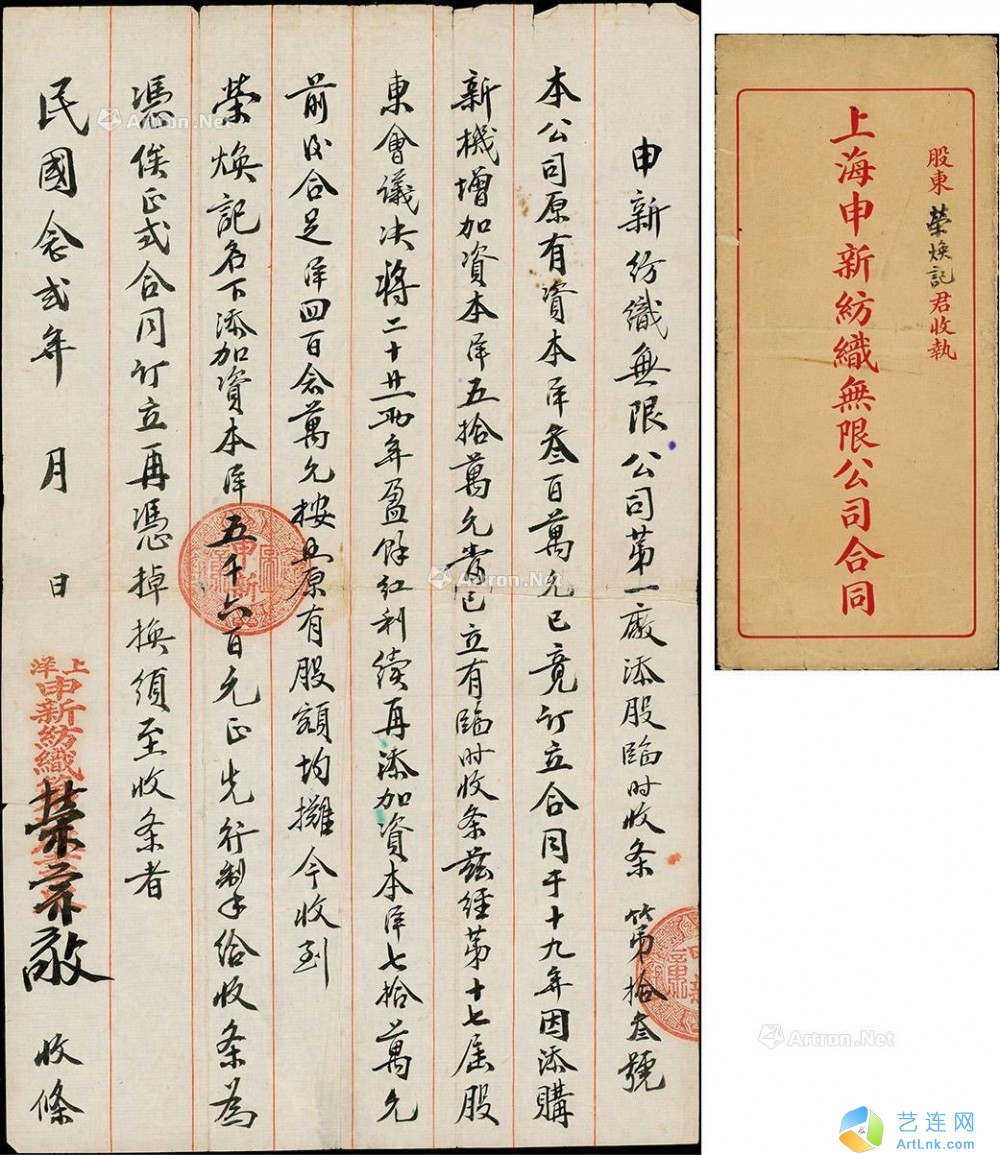 申新紡織無限公司第一廠添股臨时收条 第拾叁號
本公司原有資本洋叁百萬元已竟訂立合同于十九年因添購
新機增加資本洋五拾萬元當已立有臨时收条兹經第十七屆股
東會議决將二十廿一两年盈餘紅利續再添加資本洋七拾萬元
前後合足洋四百念萬元按照原有股額均攤今收到
榮焕記名下添加資本洋五千六百元正先行製给收条為
憑俟正式合同訂立再憑掉换須至收条者
民國念弍年 月 日
上洋
申新紡織
榮宗敬 收條
申新
股東 榮焕記 君收執
上海申新紡織無限公司合同
Artron.Net
Artron.Net
Artron.Net
艺连网
ArtLnk.com